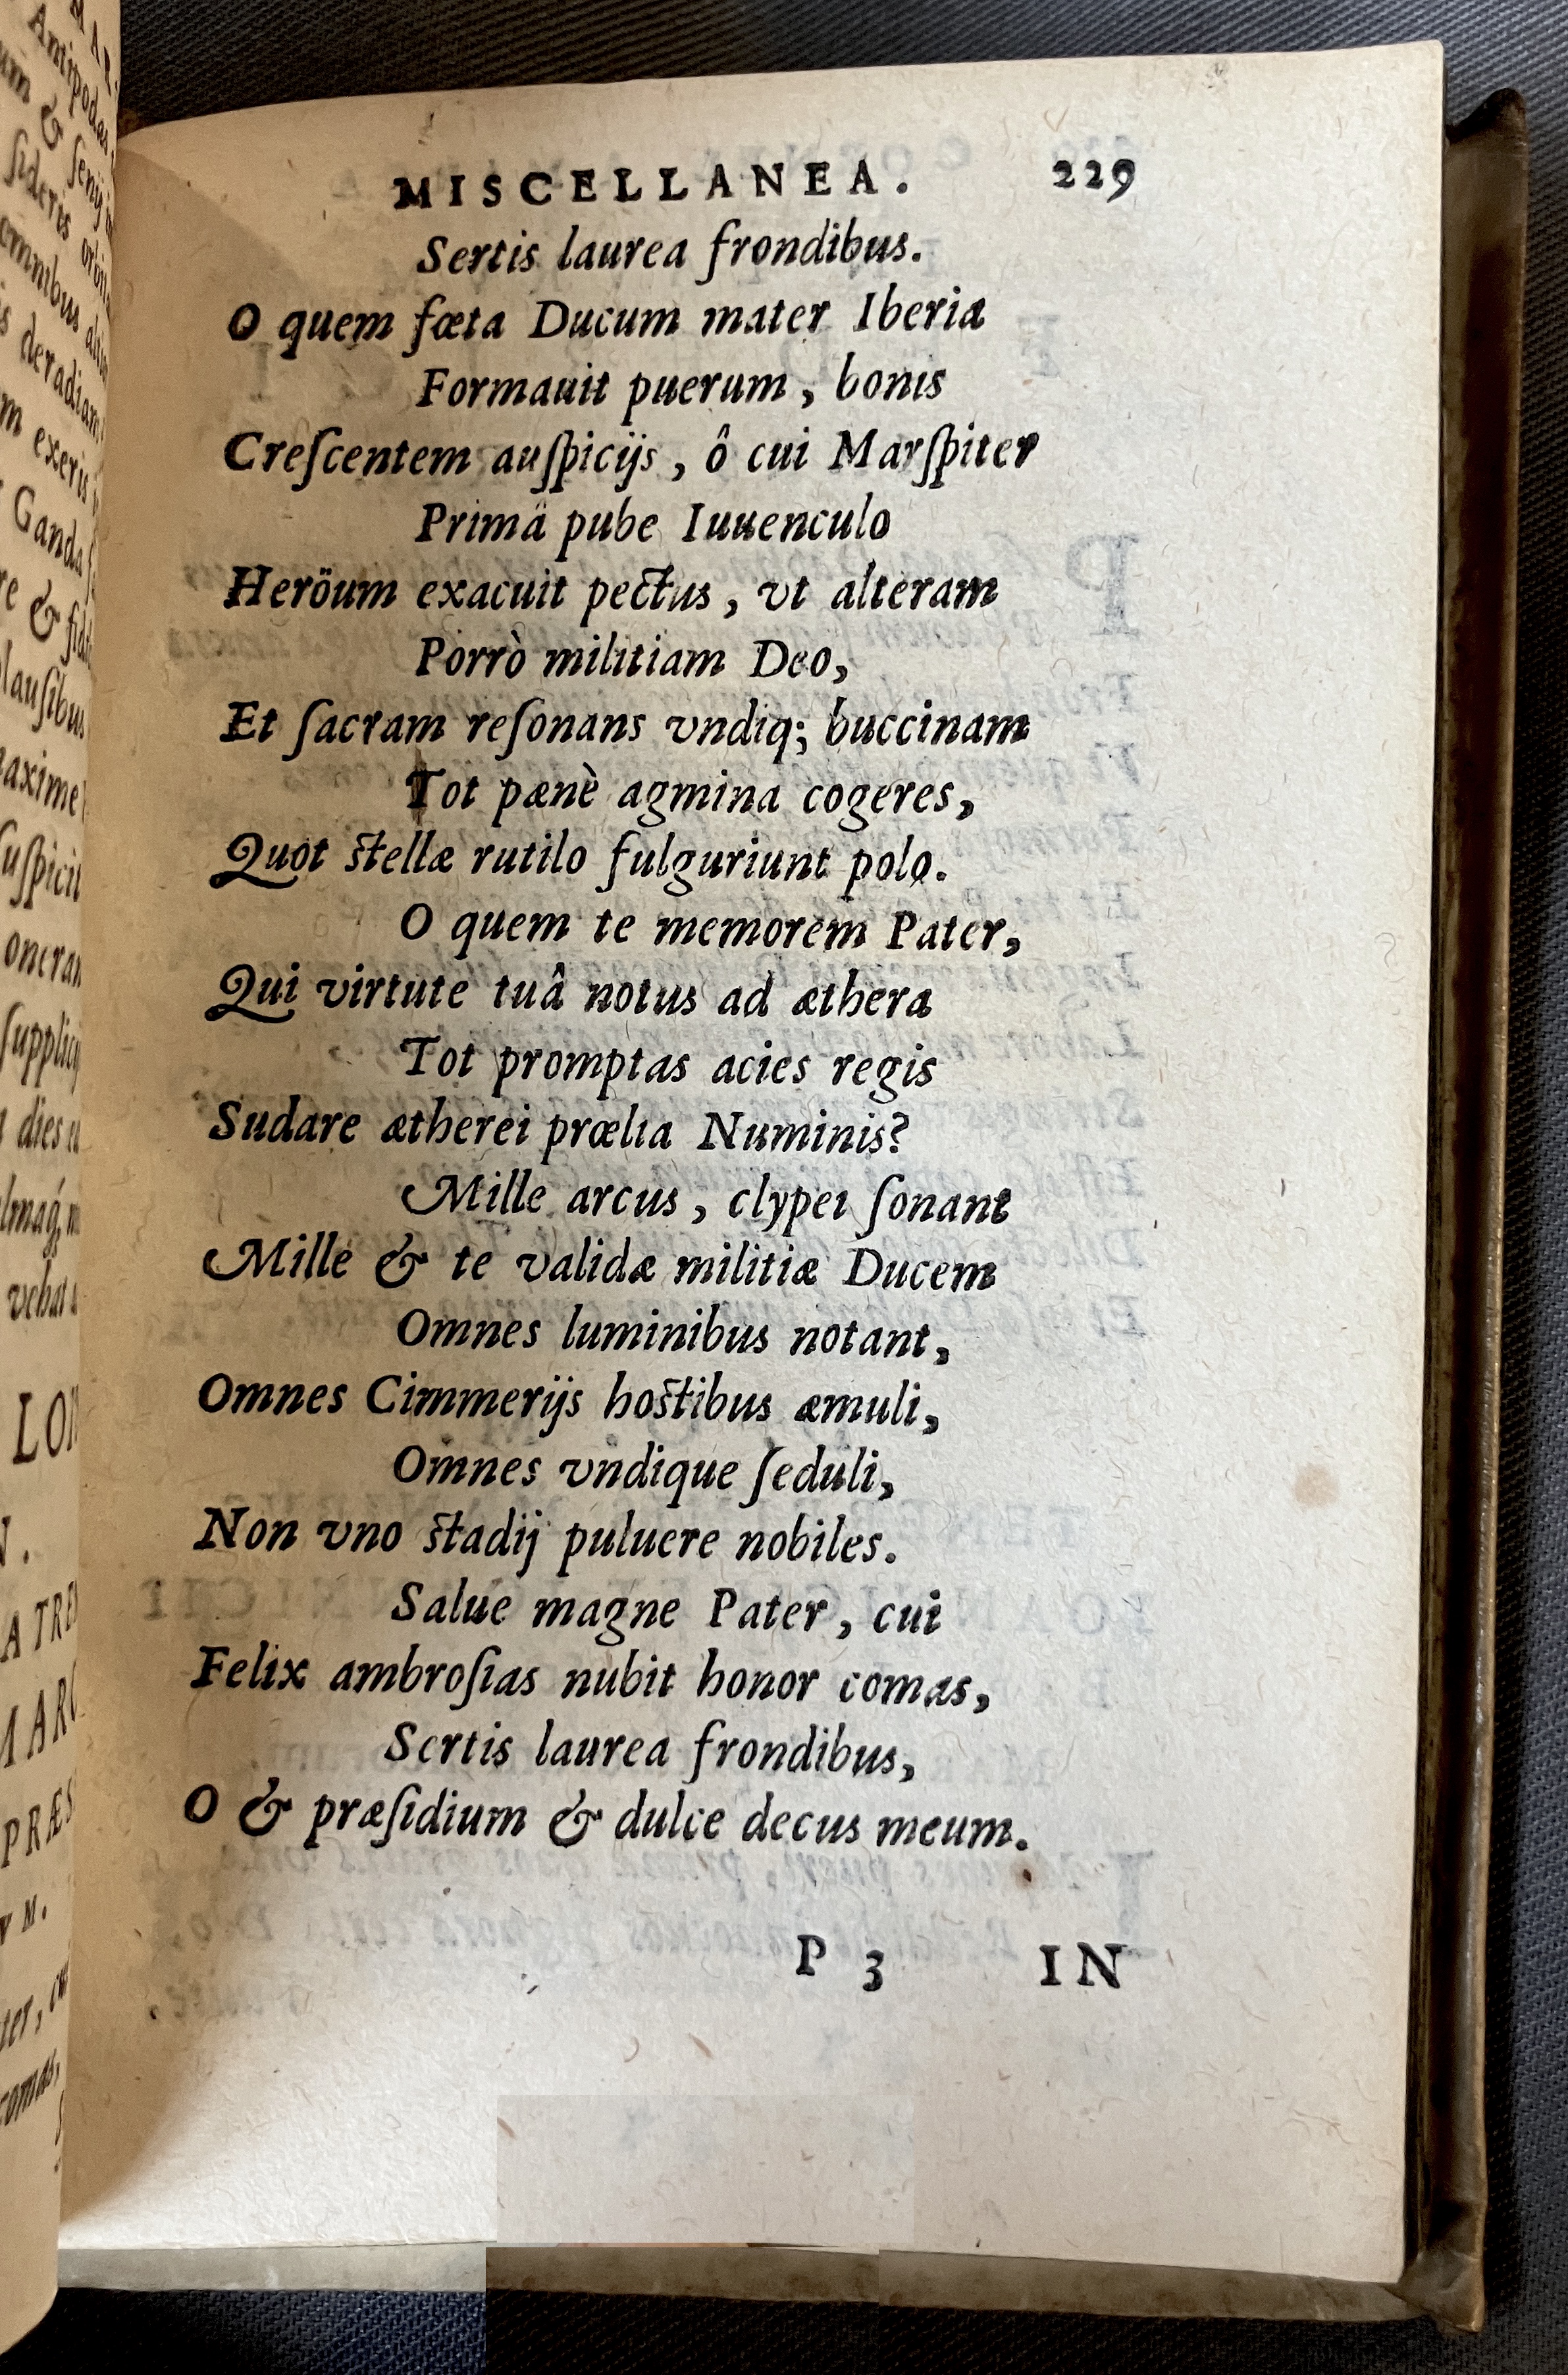 MISCELLANEA. 229
Sertis laurea frondibus.
O quem fœta Ducum mater Iberia
Formauit puerum, bonis
Creſcentem auſpicijs, ô cui Marſpiter
Primä pube Iuuenculo
Heröum exacuit pectus, vt alteram
Porrò militiam Deo,
Et ſacram reſonans vndiq; buccinam
Tot pænè agmina cogeres,
Quot ſtellæ rutilo fulguriunt polo.
O quem te memorem Pater,
Qui virtute tuâ notus ad æthera
Tot promptas acies regis
Sudare ætherei prœlia Numinis?
Mille arcus, clypei ſonant
Mille & te validæ militiæ Ducem
Omnes luminibus notant,
Omnes Cimmerijs hoſtibus æmuli,
Omnes vndique ſeduli,
Non vno ſtadij puluere nobiles.
Salue magne Pater, cui
Felix ambroſias nubit honor comas,
Sertis laurea frondibus,
O & præſidium & dulce decus meum.
P 3 IN